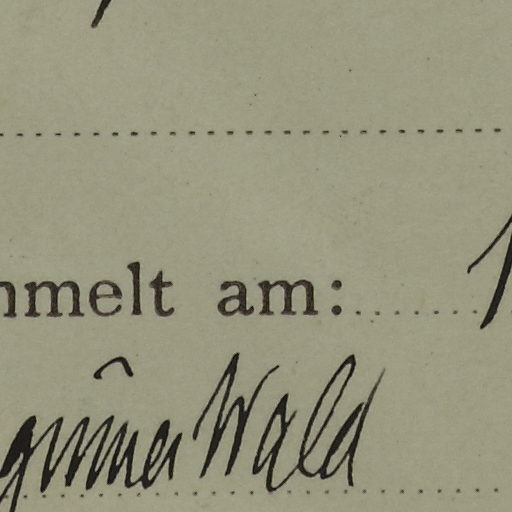 mmelt am: 1
grüner Wald